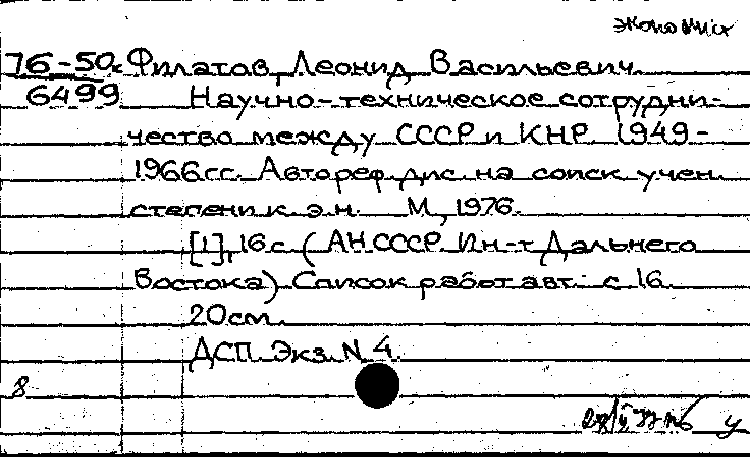 экономич
76-50с Филатов, Леонид Васильевич.
6499 Научно-техническое сотрудни-
чество между СССР и КНР. 1949-
1966 гг. Автореф. дис. на соиск. учен.
степени к. э. н. М., 1976.
[1], 16 с. (АН СССР. Ин-т Дальнего
Востока) Список работ авт.: с 16.
20 см.
ДСП. Экз. N 4.
8